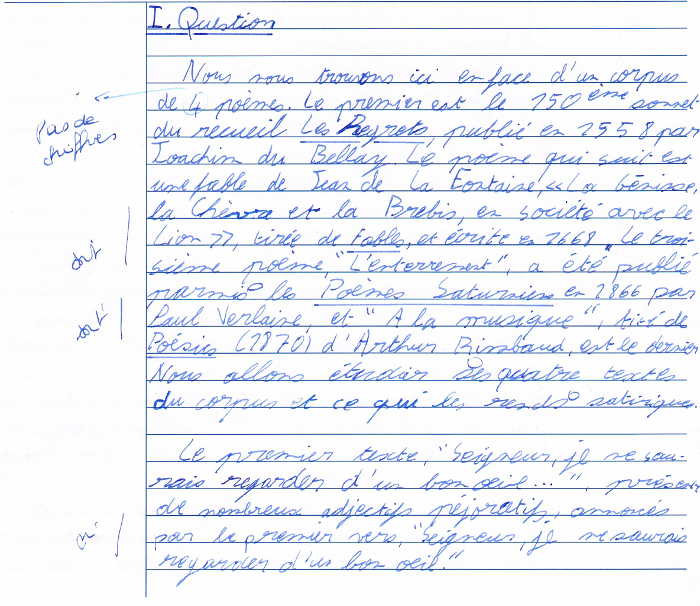 I. Question
Nous nous trouvons ici en face d'un corpus
de 4 poèmes. Le premier est le 150ème sonnet
Pas de
chiffres
du recueil Les Regrets, publié en 1558 par
Joachim du Bellay. Le poème qui suit est
une fable de Jean de La Fontaine, «La Génisse,
la Chèvre et la Brebis, en société avec le
Lion», tirée de Fables, et écrite en 1668. Le troi-
sième poème, "L'enterrement", a été publié
parmis les Poèmes Saturniens en 1866 par
Paul Verlaine, et "A la musique", tiré de
Poésies (1870) d'Arthur Rimbaud, est le dernier
Nous allons étudier ses quatre textes
du corpus et ce qui les rends satiriques.
Le premier texte, "Seigneur, je ne sau-
rais regarder d'un bon oeil...", présente
de nombreux adjectifs péjoratifs, annoncés
par le premier vers, "Seigneur, je ne saurais
regarder d'un bon oeil."